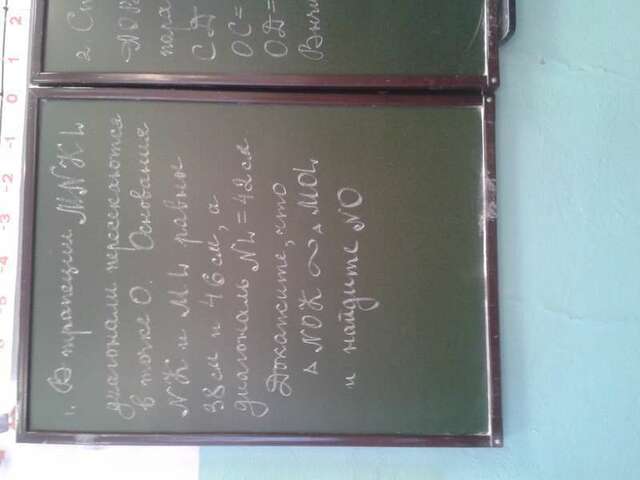 1. В трапеции MNKL
диагонали пересекаются
в точке O. Основания
NK и ML равны
38 см и 46 см, а
диагональ NL = 42 см
Докажите, что
△ NOK ∾ △ MOL
и найдите NO
2
пере
СД
ОС =
ОД =
2 1 0 -1 -2 -3 -4 -5 -6